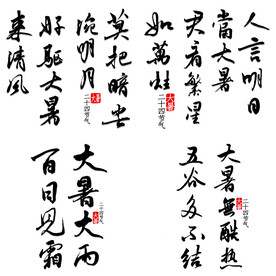 人言明日
當大暑
君看繁星
如萬炷
大暑
二十四节气
莫把暗尘
掩明月
好驱大暑
来清風
二十四节气
大暑無酷热
五谷多不结
二十四节气
大暑
大暑大雨
百日见霜
二十四节气
大暑